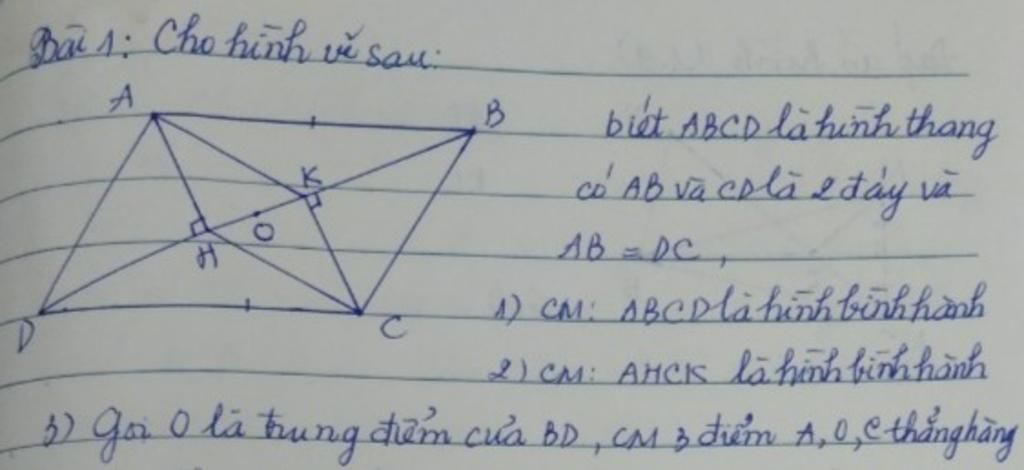 Bài 1: Cho hình vẽ sau:
A
B
biết ABCD là hình thang
K
có AB và CD là 2 đáy và
O
H
AB = DC,
D
C
1) CM: ABCD là hình bình hành
2) CM: AHCK là hình bình hành
3) Gọi O là trung điểm của BD, CM 3 điểm A, O, C thẳng hàng